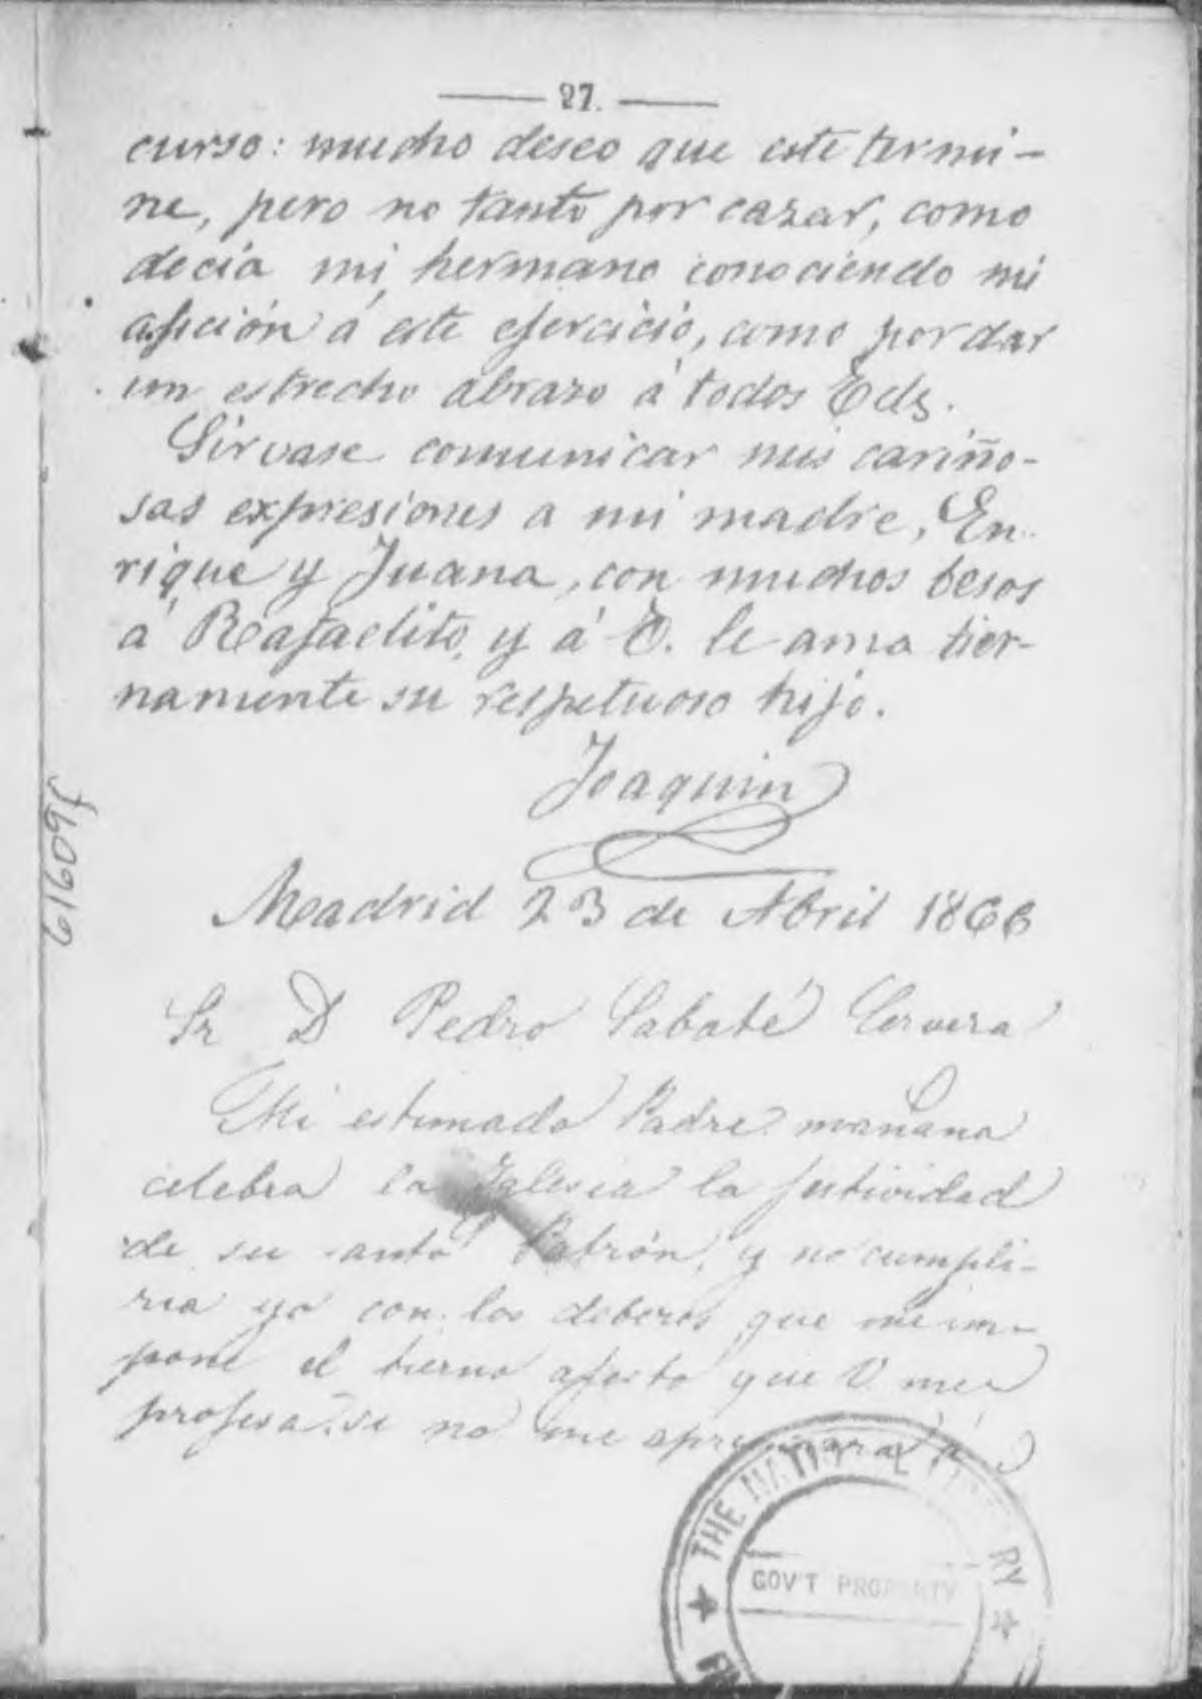 27.
curso: mucho deseo que este termi-
ne, pero no tanto por cazar, como
decía mi hermano conociendo mi
afición á este ejercicio, como por dar
un estrecho abrazo á todos Vds.
Sirvase comunicar mis cariño-
sas expresiones a mi madre, En-
rique y Juana, con muchos besos
á Rafaelito, y á V. le ama tier-
namente su respetuoso hijo.
Joaquin
Madrid 23 de Abril 1866
Sr D Pedro Sabaté Cervera
Mi estimado Padre: mañana
celebra la Iglesia la festividad
de su santo Patrón, y no cumpli-
ria yo con los deberes que me im-
pone el tierno afecto que V. me
profesa, si no me apresurara á
61609f
THE NATIONAL LIBRARY
GOV'T PROPERTY